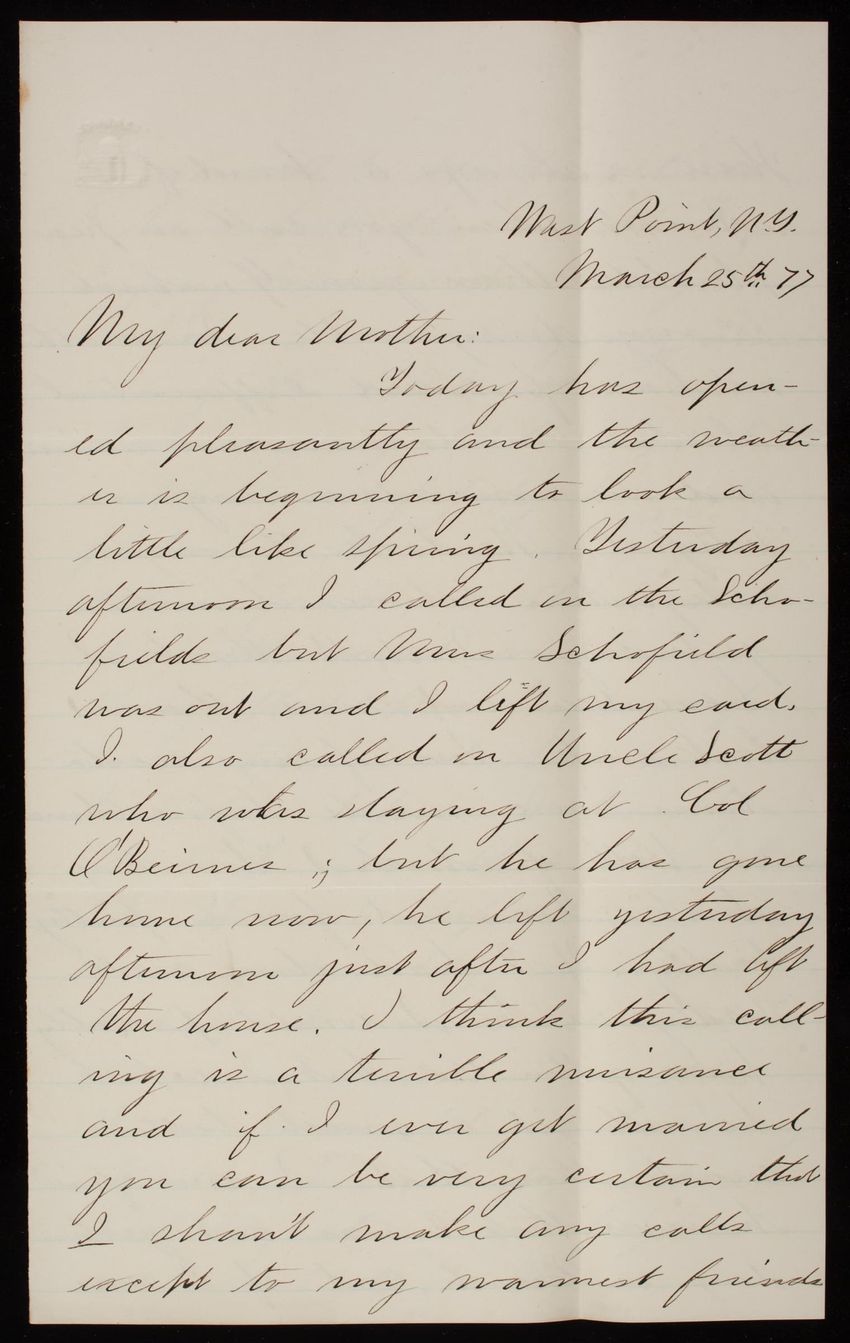 West Point, N.Y.
March 25th 77
My dear Mother:
Today has open-
ed pleasantly and the weath-
er is beginning to look a
little like spring. Yesterday
afternoon I called on the Scho-
fields but Mrs Schofield
was out and I left my card.
I also called on Uncle Scott
who was staying at Col
O'Beirnes; but he has gone
home now, he left yesterday
afternoon just after I had left
the house. I think this call-
ing is a terrible nuisance
and if I ever get married
you can be very certain that
I shan't make any calls
except to my warmest friends